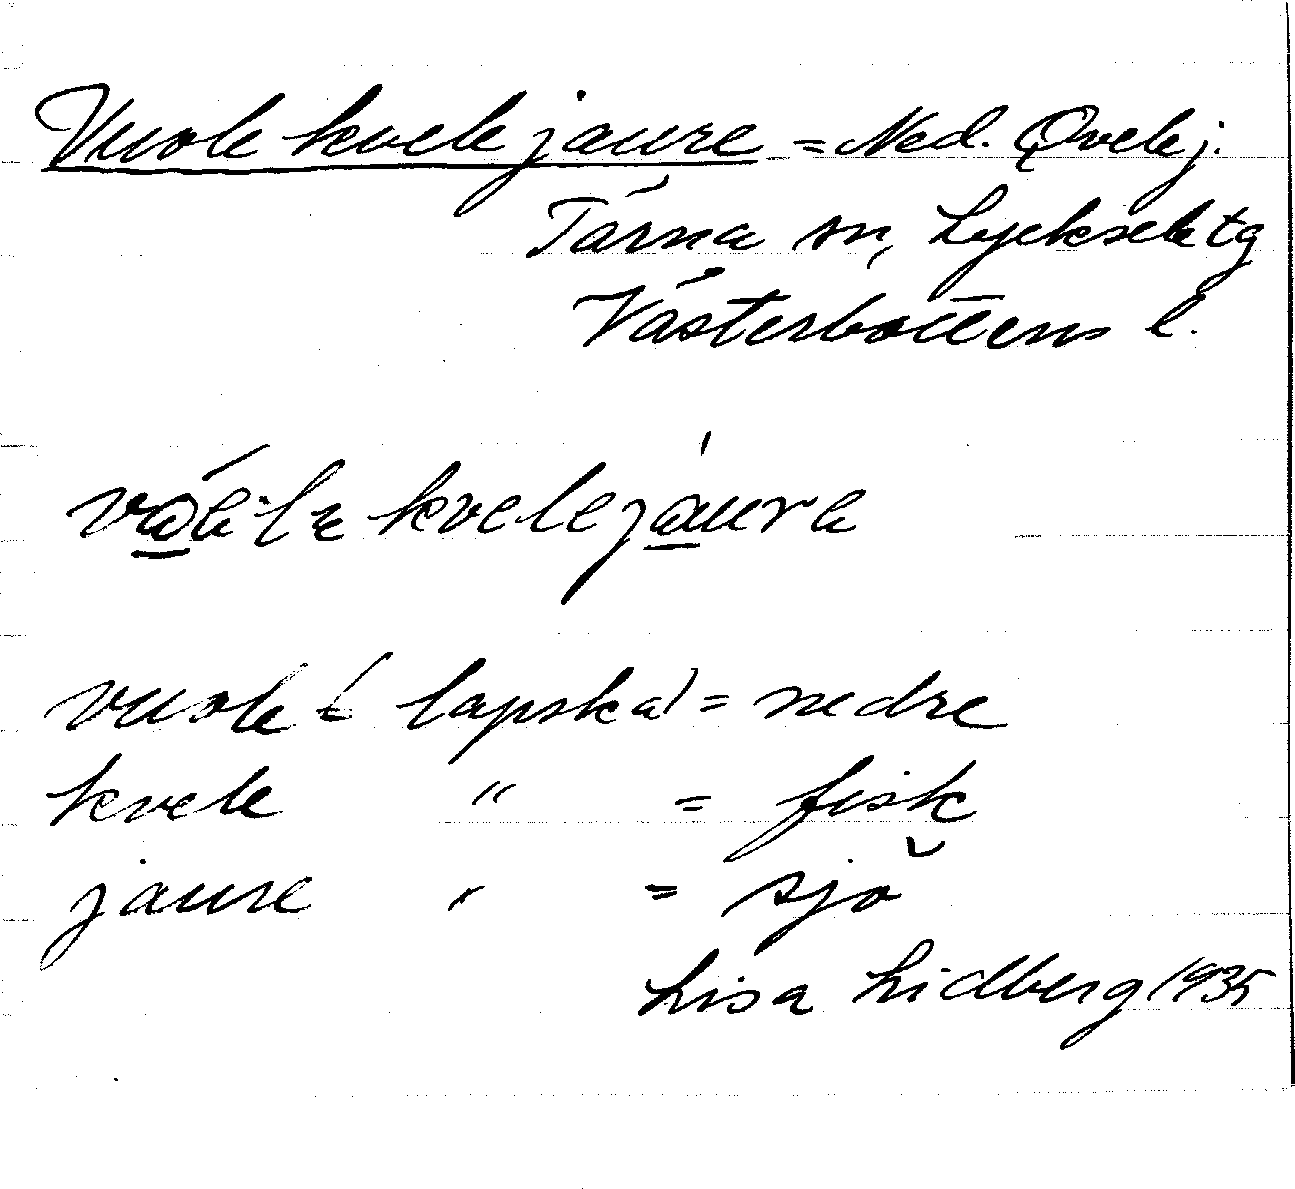 Vuole kvele jaure = Ned. Qvelej.
Tärna sn, Lycksele tg
Västerbottens l.
kvelejaura
vuole (lapska) = nedre
kvele " = fisk
jaure " = sjö
Lisa Lidberg 1935